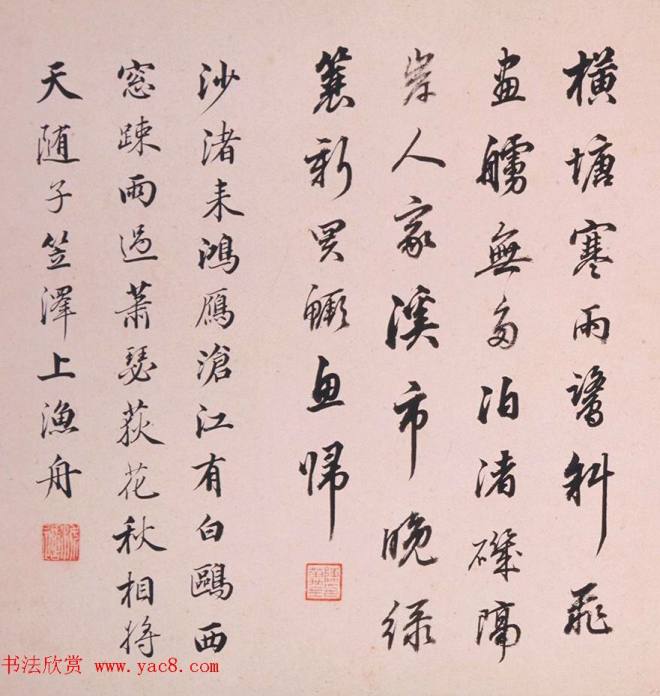 橫塘寒雨鷺斜飛
畫艫無多泊渚磯隔
岸人家溪市晚綠
蓑新買鱖魚歸
沙渚来鴻鴈滄江有白鷗西
窓疎雨過蕭瑟荻花秋相將
天随子笠澤上漁舟
书法欣赏 www.yac8.com